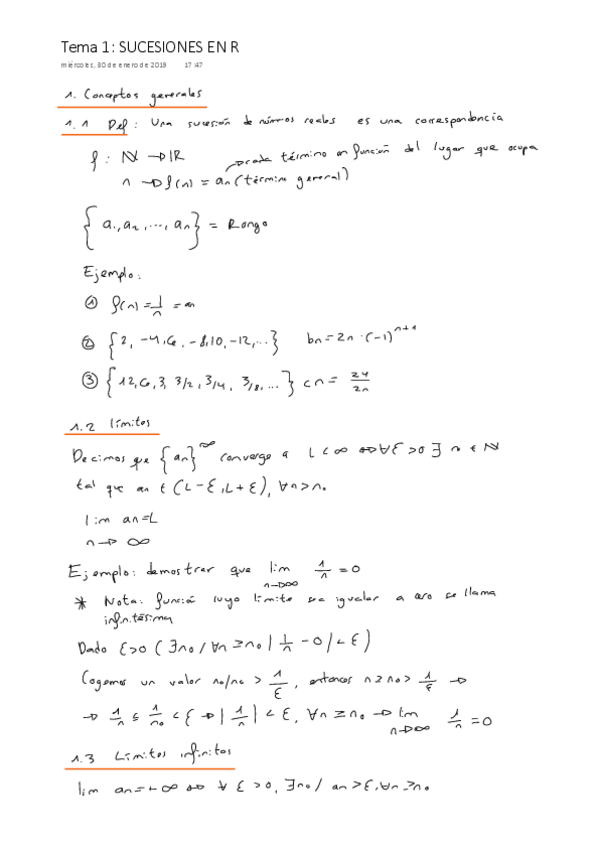 Tema 1: SUCESIONES EN R
miércoles, 30 de enero de 2019 17:47
1. Conceptos generales
1.1 Def: Una sucesión de números reales es una correspondencia
f: N → R
→ cada término en función del lugar que ocupa
n → f(n) = an (término general)
{a1, a2, ..., an} = Rango
Ejemplo:
① f(n) = 1/n = an
② {2, -4, 6, -8, 10, -12, ...} bn = 2n · (-1)^n+1
③ {12, 6, 3, 3/2, 3/4, 3/8, ...} cn = 24/2n
1.2 límites
Decimos que {an}^∞ converge a L < ∞ ⇔ ∀ε > 0 ∃ n ∈ N
tal que an ∈ (L-ε, L+ε), ∀n > n0
lim an = L
n → ∞
Ejemplo: demostrar que lim n→∞ 1/n = 0
* Nota: función cuyo límite sea igualar a cero se llama
infinitésima
Dado ε > 0 (∃n0 / ∀n ≥ n0 | 1/n - 0 | < ε)
Cogemos un valor n0/n0 > 1/ε, entonces n ≥ n0 > 1/ε →
→ 1/n ≤ 1/n0 < ε → |1/n| < ε, ∀n ≥ n0 → lim n→∞ 1/n = 0
1.3 Límites infinitos
lim an = +∞ ⇔ ∀ ε > 0, ∃n0 / an > ε, ∀n ≥ n0